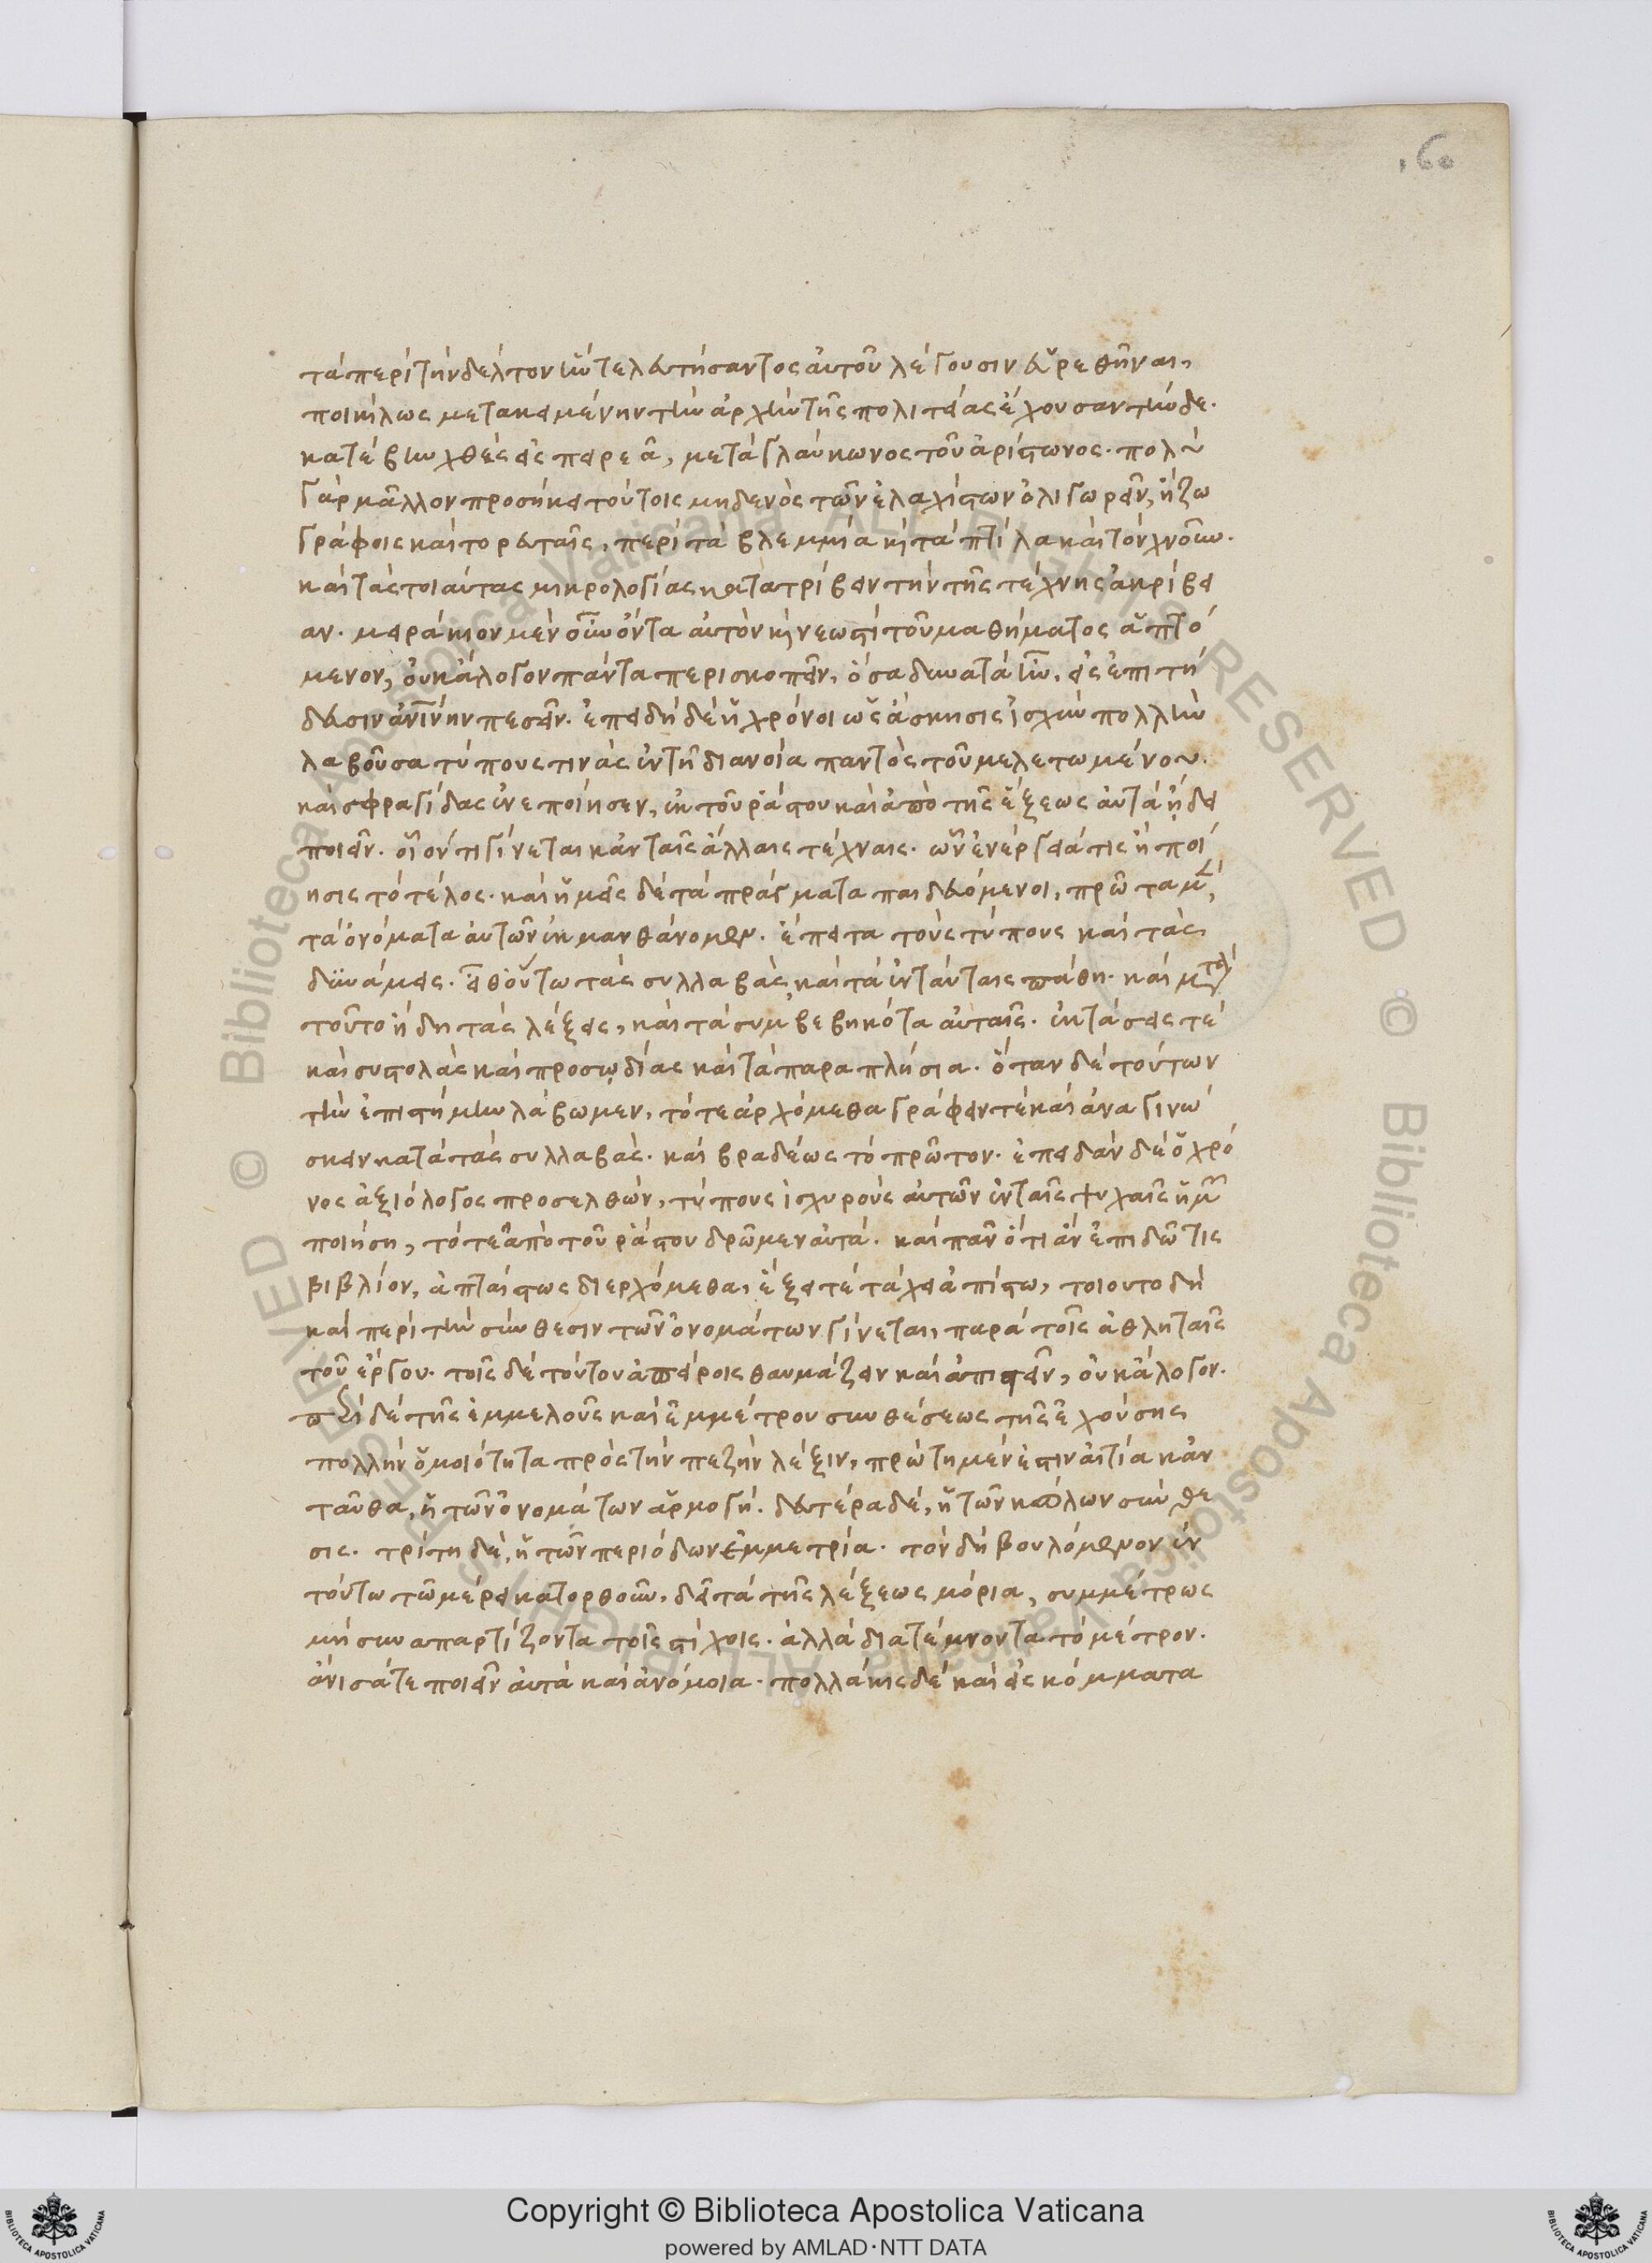 160
τὰ περὶ τὴν δέλτον ἣν τελευτήσαντος αὐτοῦ λέγουσιν εὑρεθῆναι,
ποικίλως μετακειμένην τὴν ἀρχὴν τῆς πολιτείας ἔχουσαν τήνδε.
κατέβην χθὲς εἰς πειρεᾶ, μετὰ γλαύκωνος τοῦ ἀρίστωνος. πολὺ
γὰρ μᾶλλον προσήκει τούτοις μηδενὸς τῶν ἐλαχίστων ὀλιγωρεῖν, ἢ ζω
γράφοις καὶ τορευταῖς, περὶ τὰ βλεμμία κὴ τὰ πτίλα καὶ τὸν χνοῦν.
καὶ τὰς τοιαύτας μικρολογίας κατατρίβειν τὴν τῆς τέχνης ἀκρίβει
αν. μειράκιον μὲν οὖν ὄντα αὐτὸν κὴ νεωστὶ τοῦ μαθήματος ἁπτό
μενον, οὐκ ἄλογον πάντα περισκοπεῖν, ὅσα δυνατὰ ἦν, εἰς ἐπιτή
δευσιν ἀνίνην πεσεῖν. ἐπειδὴ δὲ ἡ χρόνοι ὡς ἄσκησις ἰσχὺν πολλὴν
λαβοῦσα τύπους τινὰς ἐν τῇ διανοία παντὸς τοῦ μελετωμένου.
καὶ σφραγίδας ἐνεποίησεν, ἐκ τοῦ ῥάστου καὶ ἀπὸ τῆς ἕξεως αὐτὰ ἤδει
ποιεῖν. οἷόν τι γίνεται κἀν ταῖς ἄλλαις τέχναις. ὧν ἐνέργειά τις ἢ ποί
ησις τὸ τέλος. καὶ ἡμεῖς δὲ τὰ πράγματα παιδευόμενοι, πρῶτα μὲν,
τὰ ὀνόματα αὐτῶν ἐκμανθάνομεν. ἔπειτα τοὺς τύπους καὶ τὰς
δυνάμεις. εἶθ οὕτω τὰς συλλαβάς, καὶ τὰ ἐν ταύταις πάθη. καὶ μετὰ
τοῦτο ἤδη τὰς λέξεις, καὶ τὰ συμβεβηκότα αὐταῖς. ἐκτάσεις τέ
καὶ συστολὰς καὶ προσῳδίας καὶ τὰ παραπλήσια. ὅταν δὲ τούτων
τὴν ἐπιστήμην λάβωμεν, τότε ἀρχόμεθα γράφειν τὲ καὶ ἀναγινώ
σκειν κατὰ τὰς συλλαβάς. καὶ βραδέως τὸ πρῶτον. ἐπειδὰν δὲ ὁ χρό
νος ἀξιόλογος προσελθών, τύπους ἰσχυροὺς αὐτῶν ἐν ταῖς ψυχαῖς ἡμῶν
ποιήση, τότε ἀπὸ τοῦ ῥάστου δρῶμεν αὐτά. καὶ πᾶν ὅτι ἂν ἐπιδῶ τις
βιβλίον, ἀπταίστως διερχόμεθα, ἕξει τὲ τάχει ἀπίστω, τοιουτο δὴ
καὶ περὶ τὴν σύνθεσιν τῶν ὀνομάτων γίνεται, παρὰ τοῖς ἀθληταῖς
τοῦ ἔργου. τοῖς δὲ τούτου ἀπείροις θαυμάζειν καὶ ἀπιστεῖν, οὐκ ἄλογον.
περὶ δὲ τῆς ἐμμελοῦς καὶ ἐμμέτρου συνθέσεως τῆς ἐχούσης
πολλὴν ὁμοιότητα πρὸς τὴν πεζὴν λέξιν, πρώτη μὲν ἐστιν αἰτία κἀν
ταῦθα, ἡ τῶν ὀνομάτων ἁρμογή. δευτέρα δέ, ἡ τῶν κώλων σύνθε
σις. τρίτη δὲ, ἡ τῶν περιόδων ἐμμετρία. τὸν δὴ βουλόμενον ἐν
τούτω τῶ μέρει κατορθοῦν, δεῖ τὰ τῆς λέξεως μόρια, συμμέτρως
μὴ συναπαρτίζοντα τοῖς στίχοις. ἀλλὰ διατέμνοντα τὸ μέτρον.
ἄνισά τε ποιεῖν αὐτὰ καὶ ἀνόμοια. πολλάκις δὲ καὶ εἰς κόμματα
© Biblioteca Apostolica Vaticana ALL RIGHTS RESERVED © Biblioteca Apostolica Vaticana ALL RIGHTS RESERVED
Copyright © Biblioteca Apostolica Vaticana
powered by AMLAD·NTT DATA
BIBLIOTECA APOSTOLICA VATICANA
BIBLIOTECA APOSTOLICA VATICANA